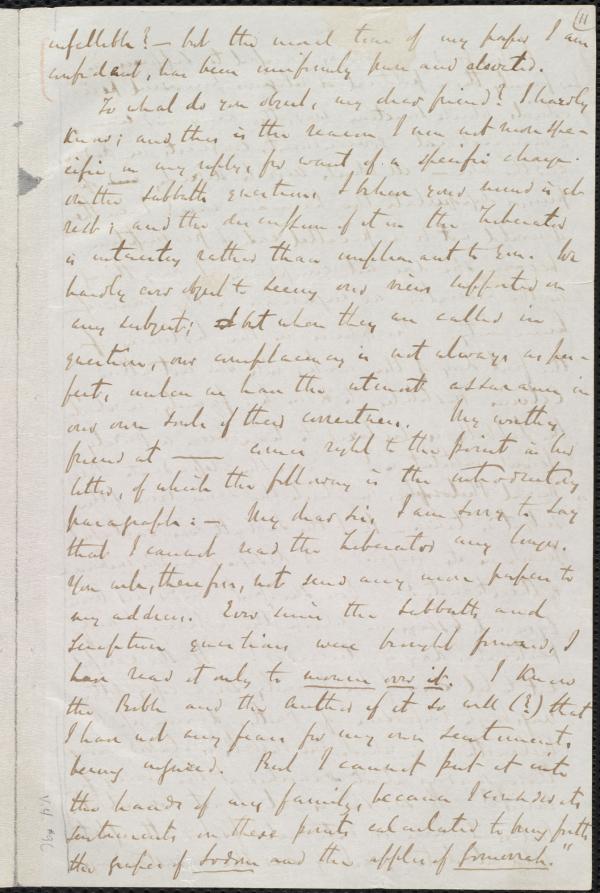 11
infallible? — but the moral tone of my paper I am
confident, has been uniformly pure and elevated.
To what do you object, my dear friend? I hardly
know; and this is the reason I am not more spe-
cific in my reply, for want of a specific charge.
On the Sabbath question, I believe your mind is at
rest; and the discussion of it in the Liberator
is interesting rather than unpleasant to you. We
hardly ever object to seeing our views supported on
any subject; but when they are called in
question, our complacency is not always as per-
fect, unless we have the utmost assurance in
our own souls of their correctness. My worthy
friend at —— comes right to the point in his
letter, of which the following is the introductory
paragraph: — My dear Sir, I am sorry to say
that I cannot read the Liberator any longer.
You will, therefore, not send any more papers to
my address. Ever since the Sabbath and
Scripture questions were brought forward, I
have read it only to mourn over it. I know
the Bible and the author of it so well (?) that
I have not any fears for my own sentiments
being injured. But I cannot put it into
the hands of my family, because I consider its
sentiments on these points calculated to bring forth
the grapes of Sodom and the apples of Gomorrah."